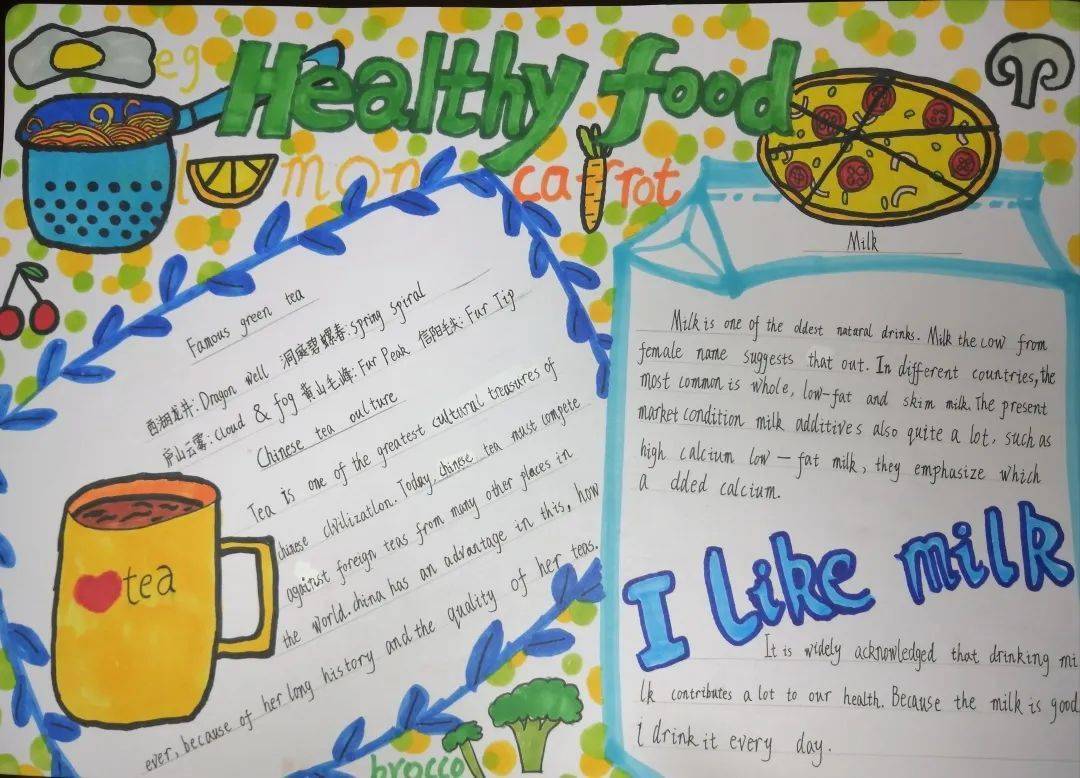 Healthy food
eg
l mon
carrot
Famous green tea
西湖龙井: Dragon well 洞庭碧螺春: spring spiral
庐山云雾: cloud & fog 黄山毛峰: Fur Peak 信阳毛尖: Fur Tip
Chinese tea oulture
Tea is one of the greatest cultural treasures of
chinese civilization. Today, chinese tea must compete
against foreign teas from many other places in
the world. china has an advantage in this, how
ever, because of her long history and the quality of her teas.
tea
brocco
Milk
Milk is one of the oldest natural drinks. Milk the cow from
female name suggests that out. In different countries, the
most common is whole, low-fat and skim milk. The present
market condition milk additives also quite a lot, such as
high calcium low - fat milk, they emphasize which
a dded calcium.
I like milk
It is widely acknowledged that drinking mi
lk contributes a lot to our health. Because the milk is good
i drink it every day.